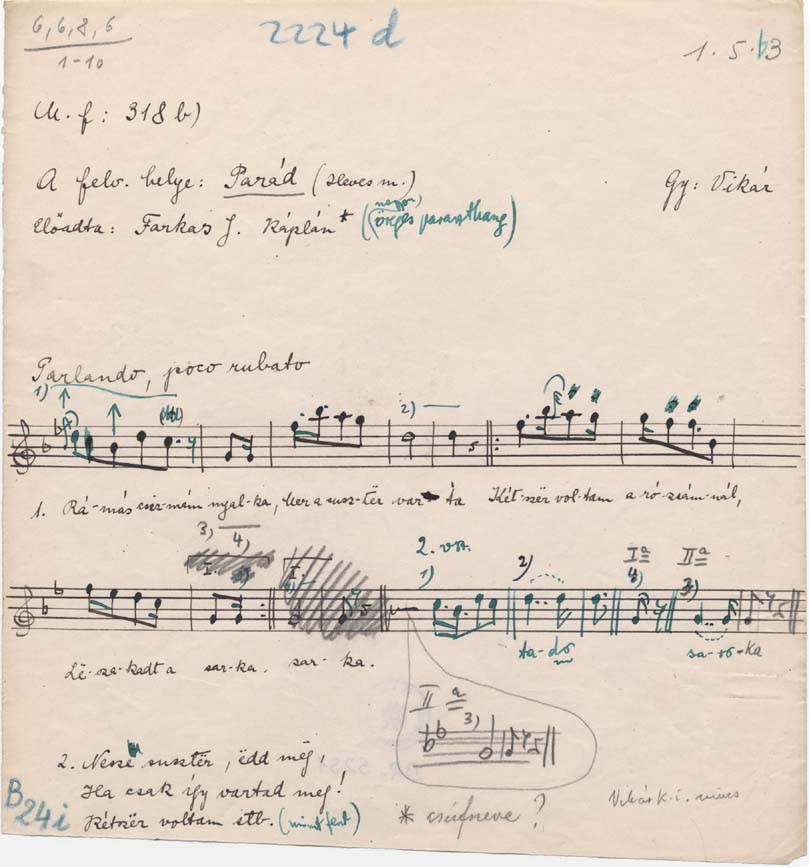 6, 6, 8, 6
1-10
2224 d
1. 5. b3
M. f: 318 b)
A felv. helye: Parád (Heves m.)
Gy: Vikár
Előadta: Farkas J. Káplán* (öreges paraszthang)
Parlando, poco rubato
1)
2)
1. Rá-más csiz-mám nyal-ka, mer a susz-tër var-ta Két-szër vol-tam a ró-zsám-nál,
3)
4)
I.
2. vsz.
1)
2)
Iª
4)
IIª
3)
Lë-sza-kadt a sar-ka. sar-ka.
ta-do
sa-ro-ka
II ª
3)
2. Nesze susztër, ëdd mëg,
Ha csak így vartad meg!
Kétszër voltam stb. (mint fent)
B
24i
* csúfneve?
Vikár k.i. nincs